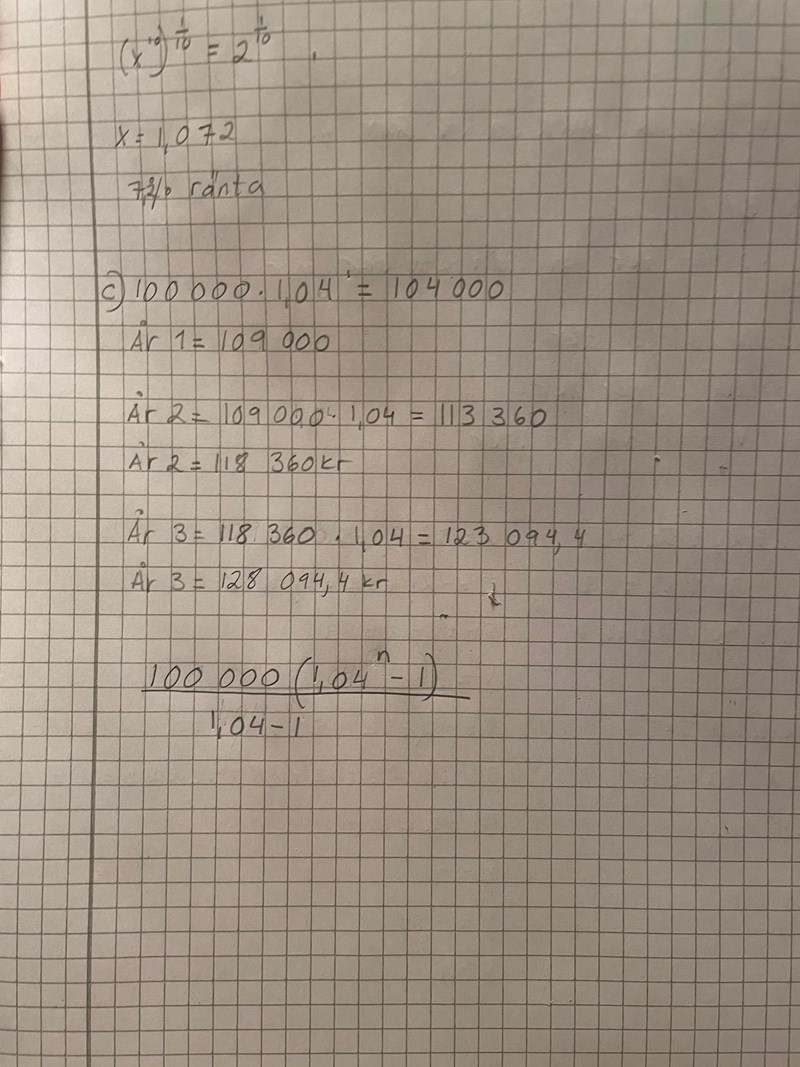 (x¹⁰)^(1/10) = 2^(1/10)
x = 1,072
7,2% ränta
c) 100 000 · 1,04¹ = 104 000
År 1 = 109 000
År 2 = 109 000 · 1,04 = 113 360
År 2 = 118 360 kr
År 3 = 118 360 · 1,04 = 123 094,4
År 3 = 128 094,4 kr
100 000 (1,04ⁿ - 1)
1,04 - 1